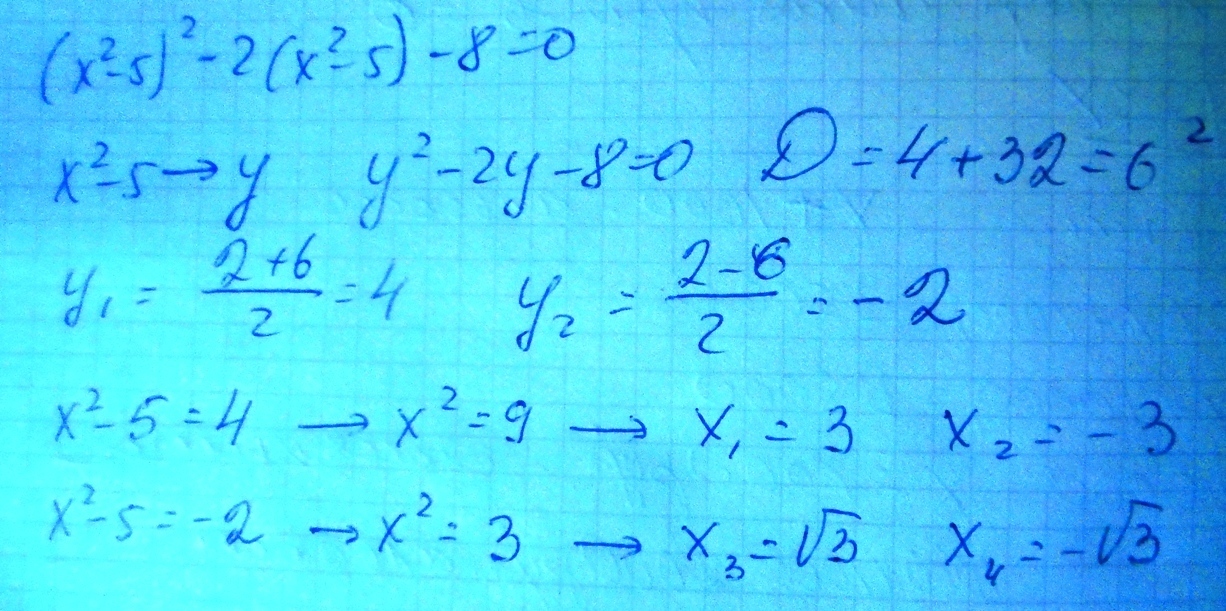 (x²-5)² - 2(x²-5) - 8 = 0
x²-5 → y   y² - 2y - 8 = 0   D = 4 + 32 = 6²
y₁ = (2+6)/2 = 4   y₂ = (2-6)/2 = -2
x² - 5 = 4 → x² = 9 → x₁ = 3   x₂ = -3
x² - 5 = -2 → x² = 3 → x₃ = √3   x₄ = -√3